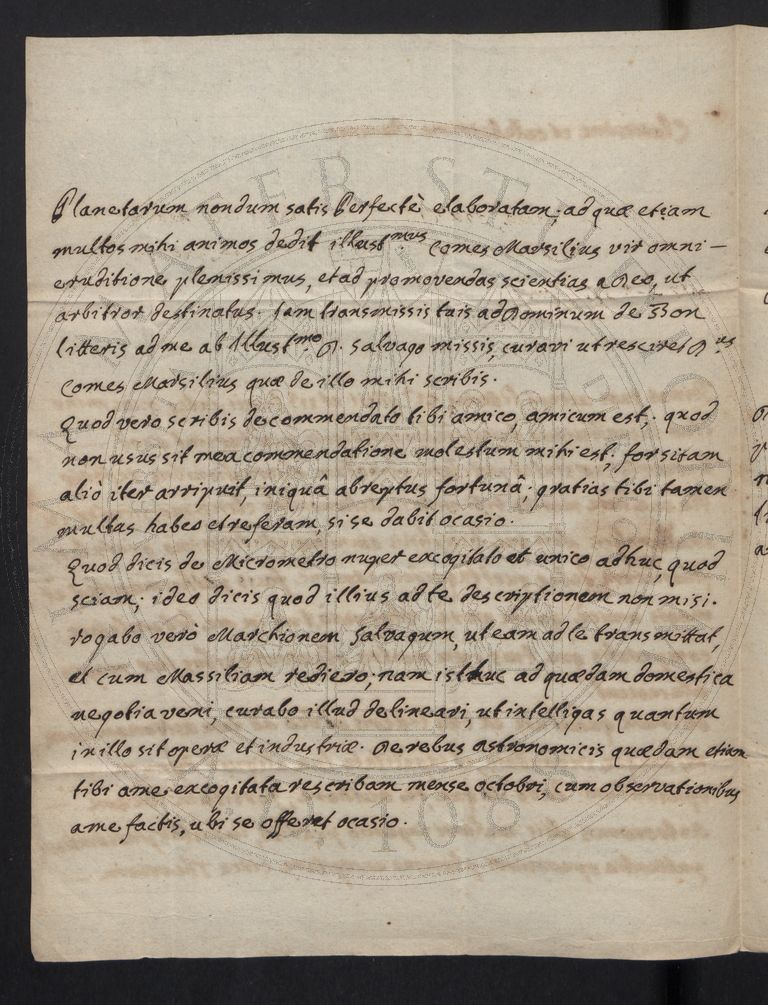 Planetarum nondum satis Perfectè elaboratam; ad quæ etiam
multos mihi animos dedit illust.mus Comes Marsilius vir omni –
eruditione plenissimus, et ad promovendas scientias a Deo, ut
arbitror destinatus. Jam transmissis tuis ad Dominum de Bon
litteris ad me ab Illust.mo D. Salvago missis, curavi ut resciret D.us
Comes Marsilius quæ de illo mihi scribis.
Quod vero scribis de commendato tibi amico, amicum est; quod
non usus sit mea commendatione molestum mihi est; forsitam
aliò iter arripuit, iniquâ abreptus fortunâ; gratias tibi tamen
multas habeo et referam, si se dabit ocasio.
Quod dicis de Micrometro nuper excogitato et unico adhuc, quod
sciam; ideo dicis quod illius ad te descriptionem non misi.
rogabo verò Marchionem Salvagum, ut eam ad te transmittat,
et cum Massiliam rediero; nam isthuc ad quædam domestica
negotia veni, curabo illud delineari, ut intelligas quantum
in illo sit operæ et industriæ. De rebus Astronomicis quædam etiam
tibi a me excogitata rescribam mense octobri, cum observationibus
a me factis, ubi se offeret ocasio.